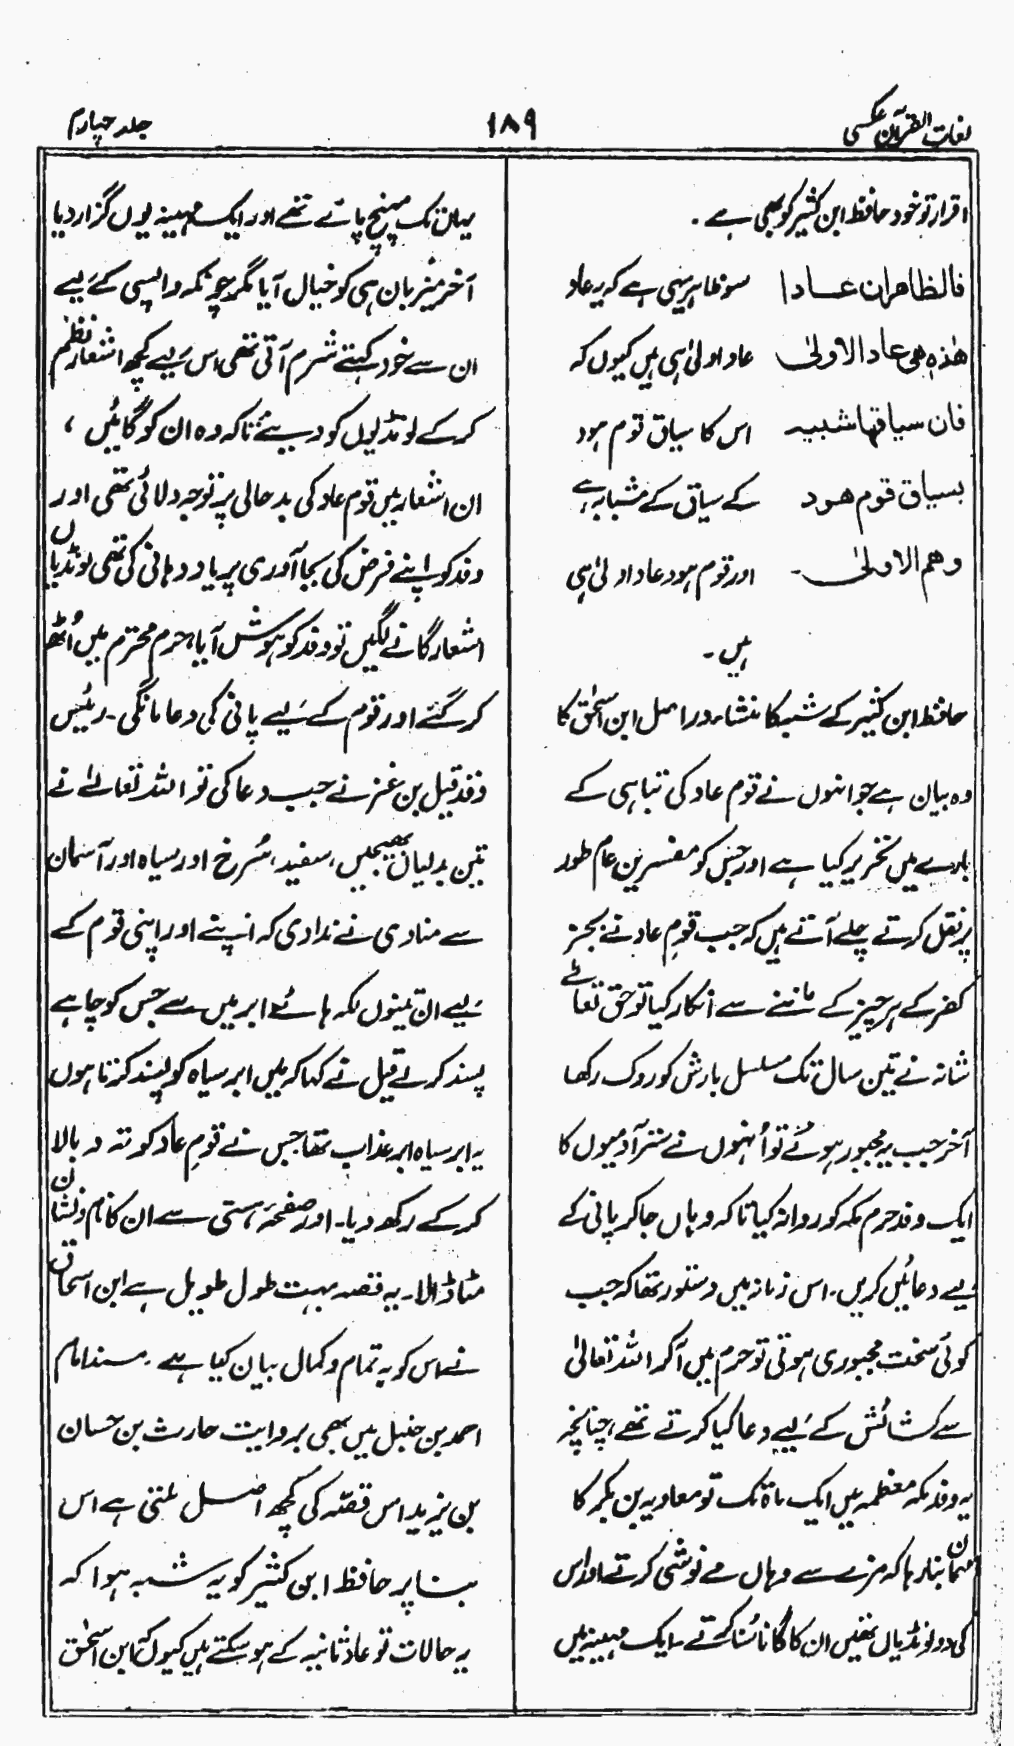 لغات القرآن عکسی
۱۸۹
جلد چہارم
اقرار تو خود حافظ ابن کثیر کو بھی ہے ۔
فالظاھر ان عادا سو ظاہر یہی ہے کہ یہ عاد
ھٰذہ ھی عاد الاولیٰ عاد اولیٰ ہی ہیں کیوں کہ
فان سیاقھا شبیہ اس کا سیاق قوم ہود
بسیاق قوم ھود کے سیاق کے مشابہ ہے
وھم الاولیٰ۔ اور قوم ہود عاد اولیٰ ہی
ہیں ۔
حافظ ابن کثیر کے شبہ کا منشاء دراصل ابن اسحٰق کا
وہ بیان ہے جو انہوں نے قوم عاد کی تباہی کے
بارے میں تحریر کیا ہے اور جس کو مفسرین عام طور
پر نقل کرتے چلے آتے ہیں کہ جب قومِ عاد نے بجز
کفر کے ہر چیز کے ماننے سے انکار کیا تو حق تعالٰے
شانہ نے تین سال تک مسلسل بارش کو روک رکھا
آخر جب یہ مجبور ہوئے تو اُنہوں نے ستر آدمیوں کا
ایک وفد حرم مکہ کو روانہ کیا تاکہ وہاں جا کر پانی کے
لیے دعائیں کریں۔ اس زمانہ میں دستور تھا کہ جب
کوئی سخت مجبوری ہوتی تو حرم میں آکر اللہ تعالیٰ
سے کشائش کے لیے دعا کیا کرتے تھے، چنانچہ
یہ وفد مکہ معظمہ میں ایک ماہ تک تو معاویہ بن بکر کا
مہمان بنا رہا کہ مزے سے وہاں مے نوشی کرتے اور اس
کی دو لونڈیاں تھیں ان کا گانا سنا کرتے ۔ ایک مہینہ میں
یہاں تک پہنچ پائے تھے اور ایک مہینہ یوں گزار دیا
آخر میزبان ہی کو خیال آیا مگر چونکہ واپسی کے لیے
ان سے خود کہتے شرم آتی تھی اس لیے کچھ اشعار نظم
کر کے لونڈیوں کو دیئے تاکہ وہ ان کو گائیں ،
ان اشعار میں قوم عاد کی بدحالی پر توجہ دلائی تھی اور
وفد کو اپنے فرض کی بجا آوری پر یاد دہانی کی تھی لونڈیاں
اشعار گانے لگیں تو وفد کو ہوش آیا، حرم محترم میں اُٹھ
کر گئے اور قوم کے لیے پانی کی دعا مانگی ۔ رئیس
وفد قیل بن عنز نے جب دعا کی تو اللہ تعالےٰ نے
تین بدلیاں بھیجیں، سفید، سُرخ اور سیاہ اور آسمان
سے منادی نے ندا دی کہ اپنے اور اپنی قوم کے
لیے ان تینوں لکہ ہائے ابر میں سے جس کو چاہے
پسند کر لے قیل نے کہا کہ میں ابر سیاہ کو پسند کرتا ہوں
یہ ابر سیاہ ابر عذاب تھا جس نے قومِ عاد کو تہ و بالا
کر کے رکھ دیا۔ اور صفحۂ ہستی سے ان کا نام و نشان
مٹا ڈالا۔ یہ قصہ بہت طول طویل ہے ابن اسحاق
نے اس کو بہ تمام و کمال بیان کیا ہے ۔ مسند امام
احمد بن حنبل میں بھی بروایت حارث بن حسان
بن یزید اس قصّہ کی کچھ اصل ملتی ہے اس
بنا پر حافظ ابن کثیر کو یہ شبہ ہوا کہ
یہ حالات تو عاد ثانیہ کے ہو سکتے ہیں کیوں کہ ابن اسحٰق